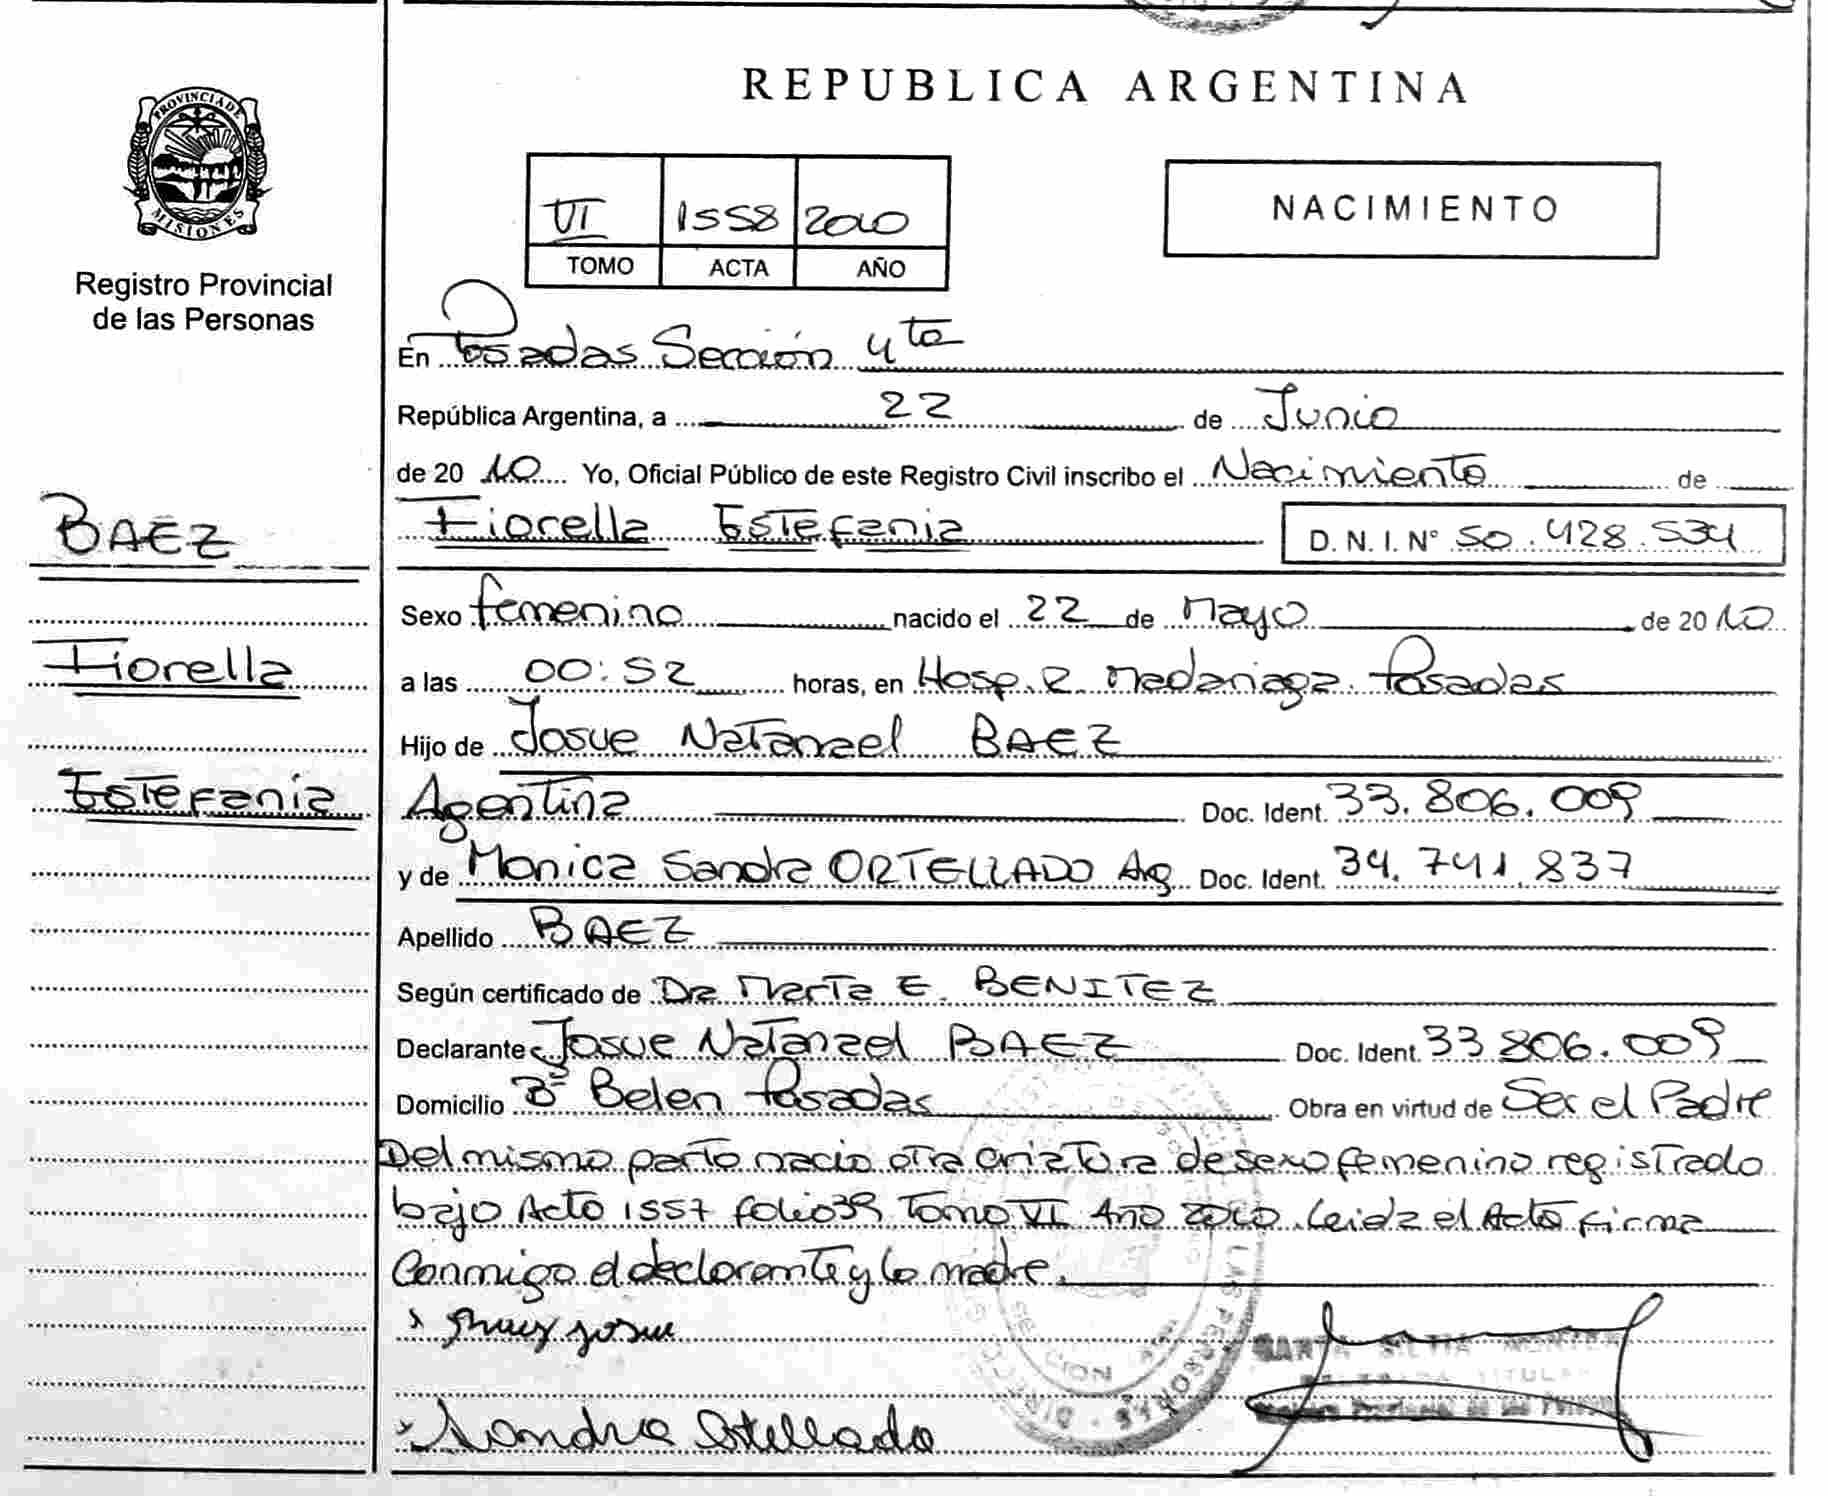 REPUBLICA ARGENTINA
PROVINCIA DE
MISIONES
Registro Provincial
de las Personas
VI 1558 2010
TOMO ACTA AÑO
NACIMIENTO
En Posadas Sección 4ta
República Argentina, a 22 de Junio
de 20 10 Yo, Oficial Público de este Registro Civil inscribo el Nacimiento de
BAEZ
Fiorella Estefania D. N. I. N° 50.428.534
Sexo femenino nacido el 22 de Mayo de 20 10
Fiorella
a las 00:52 horas, en Hosp. R. Madariaga. Posadas
Hijo de Josue Natanael BAEZ
Estefania
Agentina Doc. Ident. 33.806.009
y de Monica Sandra ORTELLADO Arg Doc. Ident. 34.741.837
Apellido BAEZ
Según certificado de Dra Marta E. BENITEZ
Declarante Josue Natanael BAEZ Doc. Ident. 33 806.009
Domicilio B° Belen Posadas Obra en virtud de Ser el Padre
Del mismo parto nacio otra criatura de sexo femenino registrado
bajo Acto 1557 folio 39 Tomo VI Año 2010. Leida el Acto firma
Conmigo el declarante y la madre.
Josue
Sandra Ortellado